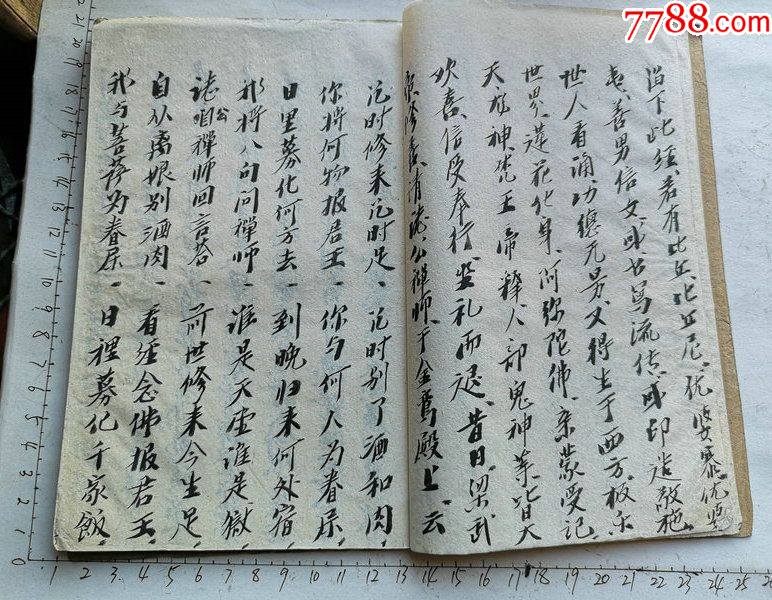 7788.com
留下此经、若有比丘、比丘尼、优婆塞优婆
夷、善男信女、或书写流传、或印造散施
世人看诵、功德无量、又得生于西方极乐
世界、莲花化身、阿弥陀佛、亲蒙受记、
天龙神 王帝释、人部鬼神等、皆大
欢喜、信受奉行、坐礼而退、昔日、梁武
公禅师、于金鸾殿上、云
几时修来几时足、几时别了酒和肉、
你将何物报君王、你与何人为眷属、
日里募化何方去、到晚归来何处宿、
我将八句问禅师、谁是天堂谁是狱、
志公禅师回言答、前世修来今生足、
自从离娘别酒肉、看经念佛报君王、
我与菩萨为眷属、日裡募化千家飯、